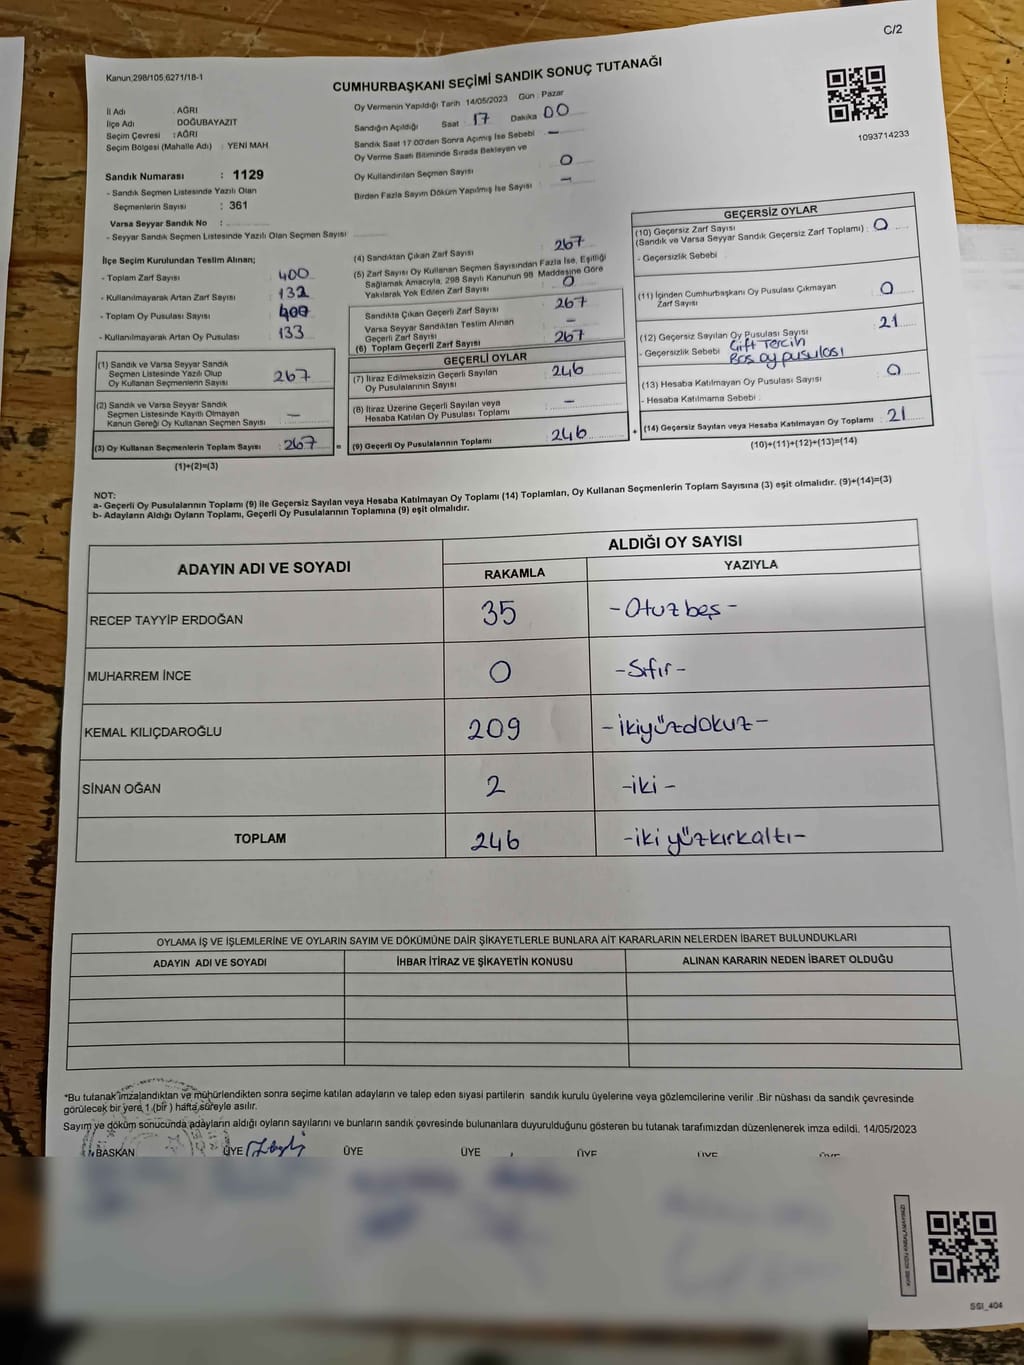 C/2
Kanun;298/105,6271/18-1
CUMHURBAŞKANI SEÇİMİ SANDIK SONUÇ TUTANAĞI
1093714233
İl Adı : AĞRI
İlçe Adı : DOĞUBAYAZIT
Seçim Çevresi : AĞRI
Seçim Bölgesi (Mahalle Adı) : YENİ MAH
Sandık Numarası : 1129
- Sandık Seçmen Listesinde Yazılı Olan
Seçmenlerin Sayısı : 361
Varsa Seyyar Sandık No :
- Seyyar Sandık Seçmen Listesinde Yazılı Olan Seçmen Sayısı
Oy Vermenin Yapıldığı Tarih 14/05/2023 Gün : Pazar
Sandığın Açıldığı Saat 17 Dakika 00
Sandık Saat 17:00'den Sonra Açımış İse Sebebi –
Oy Verme Saati Bitiminde Sırada Bekleyen ve
Oy Kullandırılan Seçmen Sayısı 0
Birden Fazla Sayım Döküm Yapılmış İse Sayısı –
İlçe Seçim Kurulundan Teslim Alınan;
- Toplam Zarf Sayısı : 400
- Kullanılmayarak Artan Zarf Sayısı : 132
- Toplam Oy Pusulası Sayısı : 400
- Kullanılmayarak Artan Oy Pusulası : 133
(1) Sandık ve Varsa Seyyar Sandık
Seçmen Listesinde Yazılı Olup
Oy Kullanan Seçmenlerin Sayısı : 267
(2) Sandık ve Varsa Seyyar Sandık
Seçmen Listesinde Kayıtlı Olmayan
Kanun Gereği Oy Kullanan Seçmen Sayısı : –
(3) Oy Kullanan Seçmenlerin Toplam Sayısı : 267
(1)+(2)=(3)
(4) Sandıktan Çıkan Zarf Sayısı : 267
(5) Zarf Sayısı Oy Kullanan Seçmen Sayısından Fazla İse, Eşitliği
Sağlamak Amacıyla, 298 Sayılı Kanunun 98 Maddesine Göre
Yakılarak Yok Edilen Zarf Sayısı : 0
Sandıkta Çıkan Geçerli Zarf Sayısı : 267
Varsa Seyyar Sandıktan Teslim Alınan
Geçerli Zarf Sayısı : –
(6) Toplam Geçerli Zarf Sayısı : 267
GEÇERLİ OYLAR
(7) İtiraz Edilmeksizin Geçerli Sayılan
Oy Pusulalarının Sayısı : 246
(8) İtiraz Üzerine Geçerli Sayılan veya
Hesaba Katılan Oy Pusulası Toplamı : –
= (9) Geçerli Oy Pusulalarının Toplamı : 246
GEÇERSİZ OYLAR
(10) Geçersiz Zarf Sayısı
(Sandık ve Varsa Seyyar Sandık Geçersiz Zarf Toplamı) : 0
- Geçersizlik Sebebi
(11) İçinden Cumhurbaşkanı Oy Pusulası Çıkmayan
Zarf Sayısı : 0
(12) Geçersiz Sayılan Oy Pusulası Sayısı : 21
- Geçersizlik Sebebi : Çift Tercih
Boş oy pusulası
(13) Hesaba Katılmayan Oy Pusulası Sayısı : 0
- Hesaba Katılmama Sebebi :
+ (14) Geçersiz Sayılan veya Hesaba Katılmayan Oy Toplamı : 21
(10)+(11)+(12)+(13)=(14)
NOT:
a- Geçerli Oy Pusulalarının Toplamı (9) ile Geçersiz Sayılan veya Hesaba Katılmayan Oy Toplamı (14) Toplamları, Oy Kullanan Seçmenlerin Toplam Sayısına (3) eşit olmalıdır. (9)+(14)=(3)
b- Adayların Aldığı Oyların Toplamı, Geçerli Oy Pusulalarının Toplamına (9) eşit olmalıdır.
ADAYIN ADI VE SOYADI
ALDIĞI OY SAYISI
RAKAMLA YAZIYLA
RECEP TAYYİP ERDOĞAN 35 -Otuzbeş-
MUHARREM İNCE 0 -Sıfır-
KEMAL KILIÇDAROĞLU 209 -İkiyüzdokuz-
SİNAN OĞAN 2 -iki-
TOPLAM 246 -iki yüzkırkaltı-
OYLAMA İŞ VE İŞLEMLERİNE VE OYLARIN SAYIM VE DÖKÜMÜNE DAİR ŞİKAYETLERLE BUNLARA AİT KARARLARIN NELERDEN İBARET BULUNDUKLARI
ADAYIN ADI VE SOYADI İHBAR İTİRAZ VE ŞİKAYETİN KONUSU ALINAN KARARIN NEDEN İBARET OLDUĞU
*Bu tutanak imzalandıktan ve mühürlendikten sonra seçime katılan adayların ve talep eden siyasi partilerin sandık kurulu üyelerine veya gözlemcilerine verilir .Bir nüshası da sandık çevresinde
görülecek bir yere 1 (bir ) hafta süreyle asılır.
Sayım ve döküm sonucunda adayların aldığı oyların sayısını ve bunların sandık çevresinde bulunanlara duyurulduğunu gösteren bu tutanak tarafımızdan düzenlenerek imza edildi. 14/05/2023
BAŞKAN ÜYE ÜYE ÜYE ÜYE ÜYE ÜYE
SSI_404